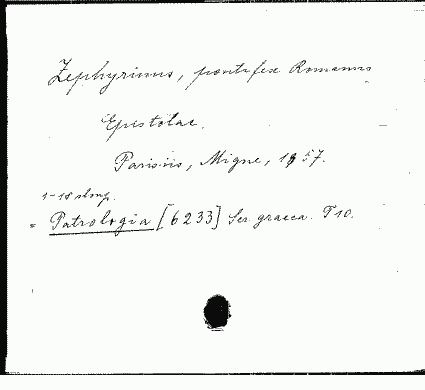 Zephyrinus, pontifex Romanus
Epistolae.
Parisiis, Migne, 1857.
1-18 stlmp.
= Patrologia [6233] Ser. graeca. T 10.